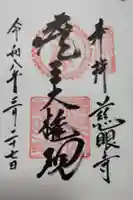 奉拝
慈眼寺
蔵王大権現
令和八年三月二十七日